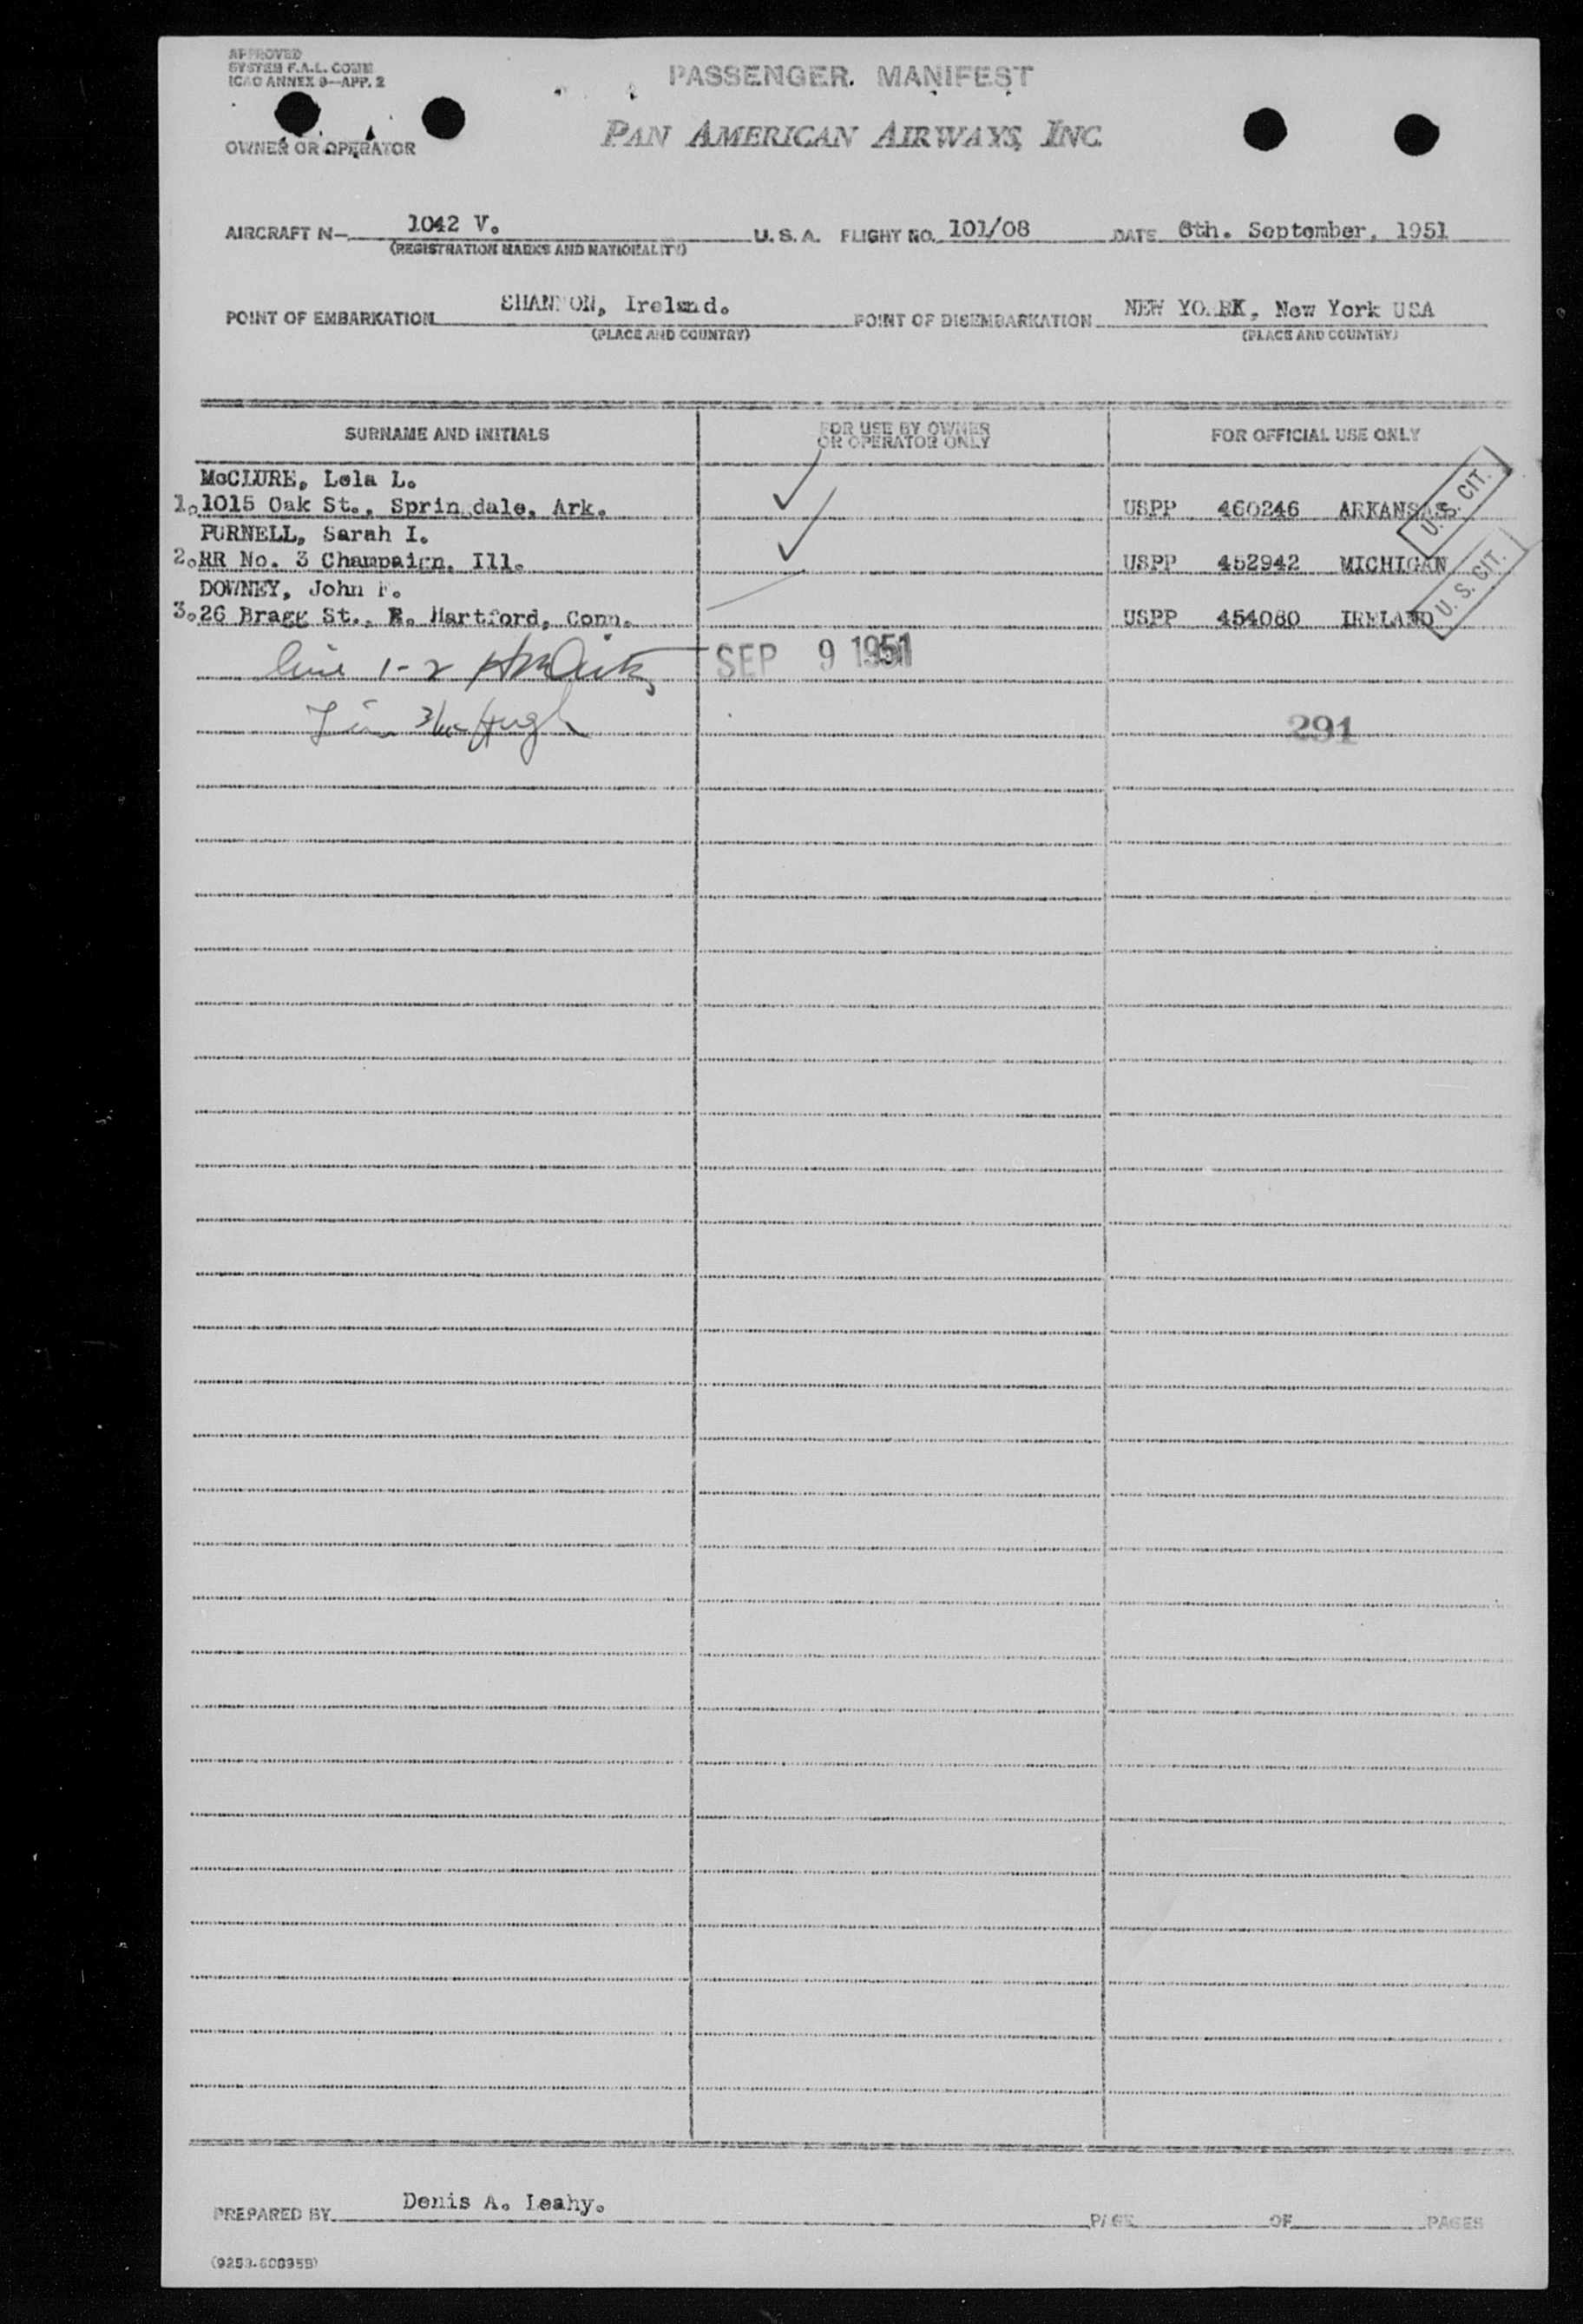 APPROVED
SYSTEM F.A.L. COMM
ICAO ANNEX 9—APP. 2
PASSENGER MANIFEST
OWNER OR OPERATOR
PAN AMERICAN AIRWAYS, INC.
AIRCRAFT N— 1042 V. U. S. A. FLIGHT NO. 101/08 DATE 8th. September, 1951
(REGISTRATION MARKS AND NATIONALITY)
POINT OF EMBARKATION SHANNON, Ireland. POINT OF DISEMBARKATION NEW YORK, New York USA
(PLACE AND COUNTRY) (PLACE AND COUNTRY)
SURNAME AND INITIALS FOR USE BY OWNER OR OPERATOR ONLY FOR OFFICIAL USE ONLY
McCLURE, Lela L.
1. 1015 Oak St., Springdale, Ark. USPP 460246 ARKANSAS U. S. CIT.
PURNELL, Sarah I.
2. RR No. 3 Champaign, Ill. USPP 452942 MICHIGAN
DOWNEY, John F.
3. 26 Bragg St., E. Hartford, Conn. USPP 454080 IRELAND U. S. CIT.
line 1-2 SEP 9 1951
291
PREPARED BY Denis A. Leahy. PAGE OF PAGES